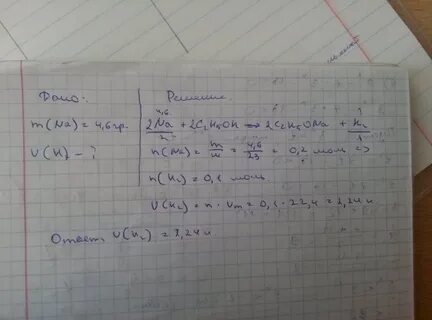 Дано: Решение
4,6
m(Na) = 4,6 гр. 2Na + 2C₂H₅OH => 2C₂H₅ONa + H₂
V(H) - ? n(Na) = m/M = 4,6/23 = 0,2 моль =>
n(H₂) = 0,1 моль
V(H₂) = n · Vm = 0,1 · 22,4 = 2,24 л
Ответ V(H₂) = 2,24 л